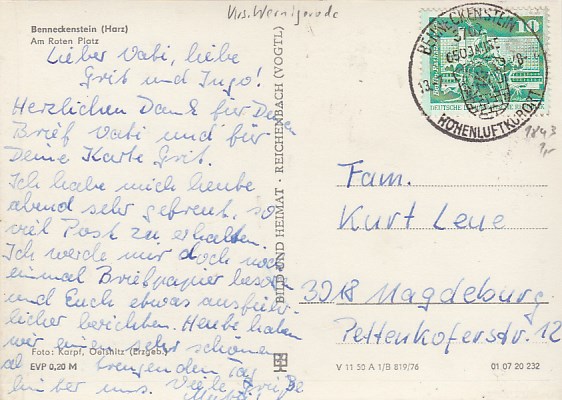 Krs. Wernigerode
Benneckenstein (Harz)
Am Roten Platz
Lieber Vati, liebe
Grit und Ingo!
Herzlichen Dank für Deinen
Brief Vati und für
Deine Karte Grit.
Ich habe mich heute
abend sehr gefreut, so
viel Post zu erhalten.
Ich werde mir doch noch
einmal Briefpapier besorgen
und Euch etwas ausführ-
licher berichten. Heute haben
wir einen sehr schönen
den Tag
hinter uns. Viele Grüße
Mutti
Foto: Karpf, Oelsnitz (Erzgeb.)
EVP 0,20 M
BILD UND HEIMAT · REICHENBACH (VOGTL)
BENNECKENSTEIN
HÖHENLUFTKURORT
10
1843
Fam.
Kurt Leue
3018 Magdeburg
Pettenkoferstr. 12
V 11 50 A 1/B 819/76
01 07 20 232